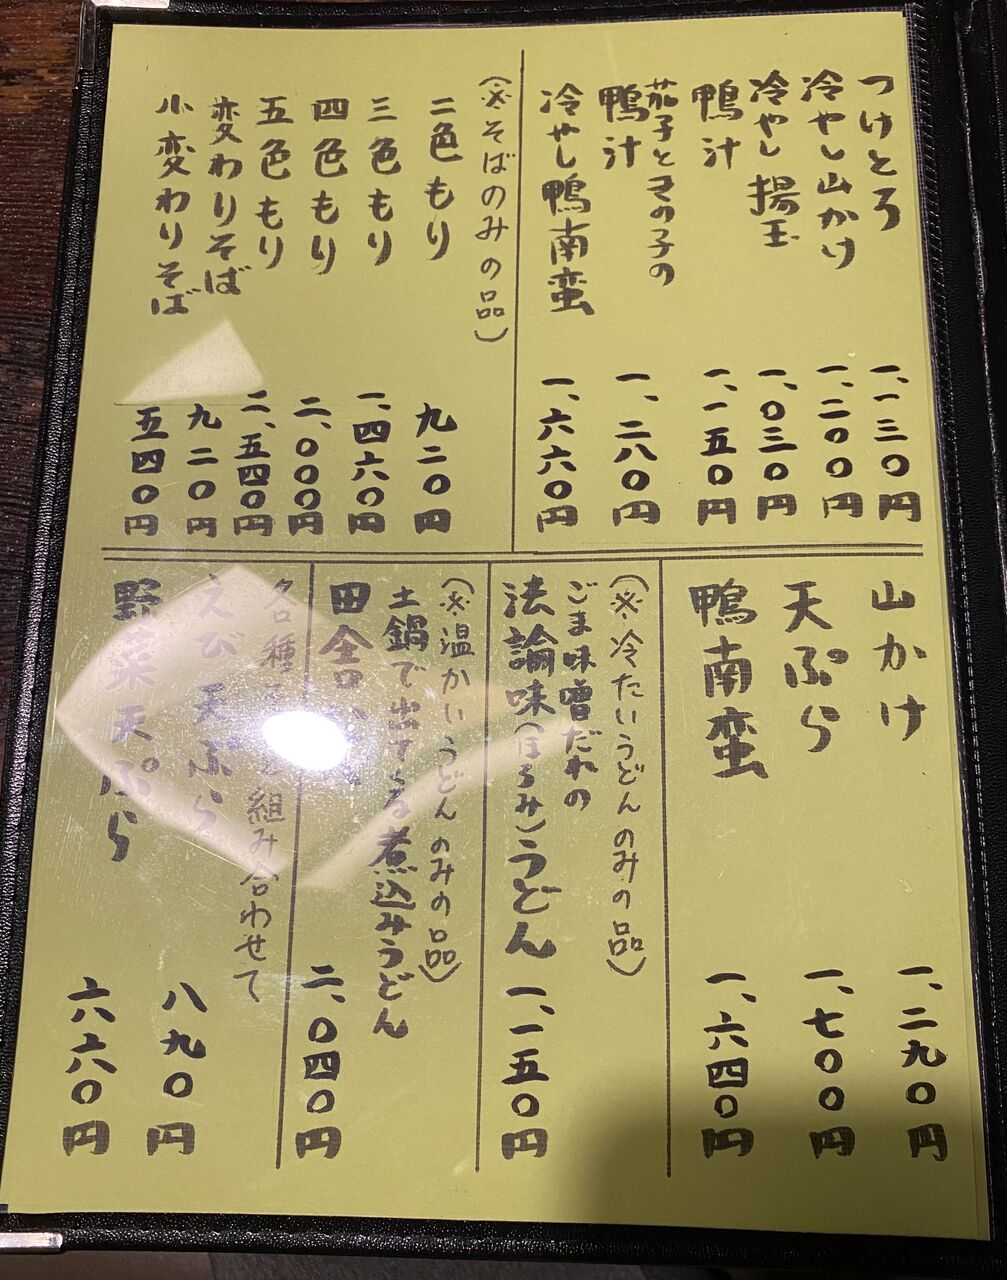 つけとろ 一、一三〇円
冷やし山かけ 一、二〇〇円
冷やし揚玉 一、〇三〇円
鴨汁 一、一五〇円
茄子ときの子の
鴨汁 一、二八〇円
冷やし鴨南蛮 一、六六〇円
(※そばのみの品)
二色もり 九二〇円
三色もり 一、四六〇円
四色もり 二、〇〇〇円
五色もり 二、五四〇円
変わりそば 九二〇円
小変わりそば 五四〇円
山かけ 一、二九〇円
天ぷら 一、七〇〇円
鴨南蛮 一、六四〇円
(※冷たいうどんのみの品)
ごま味噌だれの
法論味(ほろみ)うどん 一、一五〇円
(※温かいうどんのみの品)
土鍋で出てくる煮込みうどん
田舎 二、〇四〇円
各種 組み合わせて
えび天ぷら 八九〇円
野菜天ぷら 六六〇円